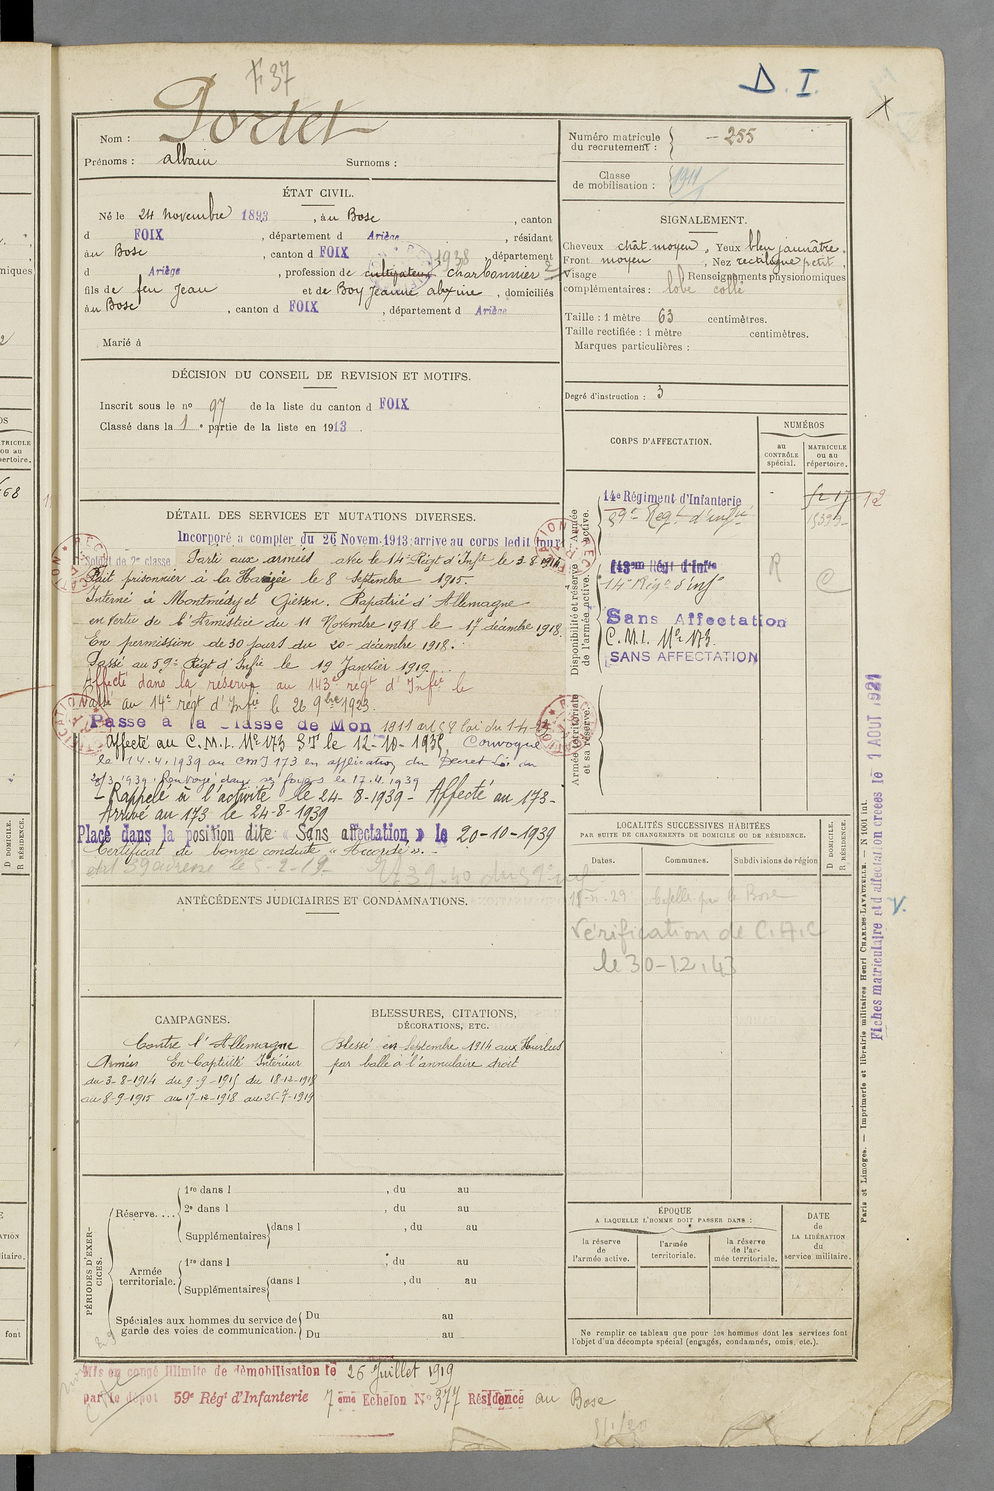 F 37
D. I.
X
Portet
Nom :
Prénoms : albain Surnoms :
Numéro matricule du recrutement : 255
Classe de mobilisation : 1911
ÉTAT CIVIL.
Né le 24 novembre 1893, au Bosc, canton
d FOIX, département d Ariège, résidant
au Bosc, canton d FOIX, 1938 département
d Ariège, profession de cultivateur charbonnier
fils de feu Jean et de Boy Jeanne alexine, domiciliés
à u Bosc, canton d FOIX, département d Ariège
Marié à
SIGNALEMENT.
Cheveux chât moyen, Yeux bleu jaunâtre.
Front moyen, Nez rectiligne petit
Visage Renseignements physionomiques
complémentaires : lobe collé
Taille : 1 mètre 63 centimètres.
Taille rectifiée : 1 mètre centimètres.
Marques particulières :
Degré d'instruction : 3
DÉCISION DU CONSEIL DE REVISION ET MOTIFS.
Inscrit sous le n° 97 de la liste du canton d FOIX
Classé dans la 1e partie de la liste en 1913.
DÉTAIL DES SERVICES ET MUTATIONS DIVERSES.
Incorporé a compter du 26 Novem. 1913 arrive au corps ledit jour
Soldat de 2e classe Parti aux armées avec le 14e Régt d'Infie le 3.8.1914
Fait prisonnier à la Harazée le 8 septembre 1915.
Interné à Montmédy et Giessen. Rapatrié d'Allemagne
en vertu de l'Armistice du 11 Novembre 1918 le 17 décembre 1918.
En permission de 30 jours du 20 décembre 1918.
Passé au 59e Régt d'Infie le 19 Janvier 1919
Affecté dans la réserve au 143e régt d'Infie le
Passé au 14e régt d'Infie le 26 9bre 1923.
Passe à la Classe de Mon 1911 art 58 loi du 1-4-23
Affecté au C.M.I. No 173 ST le 12-10-1935, Convoqué
le 14.4.1939 au CMI 173 en application du Décret Loi du
20/3/1939. Renvoyé dans ses foyers le 17.4.1939
— Rappelé à l'activité le 24-8-1939 - Affecté au 173 -
Arrivé au 173 le 24-8-1939
Placé dans la position dite « Sans affectation » le 20-10-1939
Certificat de bonne conduite "Accordé". -
CORPS D'AFFECTATION.
NUMÉROS
au CONTRÔLE spécial.
MATRICULE ou au répertoire.
Disponibilité et réserve de l'armée active.
Armée active.
Armée territoriale et sa réserve.
14e Régiment d'Infanterie
59e Régt d'Infie
143me Régt d'Infie
14e Régt d'Infie
Sans Affectation
C.M.I. No 173.
SANS AFFECTATION
R
C
LOCALITÉS SUCCESSIVES HABITÉES
PAR SUITE DE CHANGEMENTS DE DOMICILE OU DE RÉSIDENCE.
Dates. Communes. Subdivisions de région
D DOMICILE.
R RÉSIDENCE.
Vérification de C.A.C
le 30-12-43
ANTÉCÉDENTS JUDICIAIRES ET CONDAMNATIONS.
CAMPAGNES.
Contre l'Allemagne
Armées En Captivité Intérieur
du 3-8-1914 du 9-9-1915 du 18-12-1918
au 8-9-1915 au 17-12-1918 au 25-7-1919
BLESSURES, CITATIONS,
DÉCORATIONS, ETC.
Blessé en septembre 1914 aux Hurlus
par balle à l'annulaire droit
PÉRIODES D'EXERCICES.
Réserve....
1re dans l , du au
2e dans l , du au
Supplémentaires dans l , du au
Armée territoriale.
1re dans l , du au
Supplémentaires dans l , du au
Spéciales aux hommes du service de garde des voies de communication.
Du au
Du au
ÉPOQUE
A LAQUELLE L'HOMME DOIT PASSER DANS :
la réserve de l'armée active.
l'armée territoriale.
la réserve de l'armée territoriale.
DATE
de
LA LIBÉRATION
du
service militaire.
Ne remplir ce tableau que pour les hommes dont les services font
l'objet d'un décompte spécial (engagés, condamnés, omis, etc.).
Mis en congé illimité de démobilisation le 26 Juillet 1919
par le dépot 59e Régt d'Infanterie 7eme Echelon No 377 Résidence au Bosc
Paris et Limoges. — Imprimerie et librairie militaires Henri CHARLES-LAVAUZELLE. — N 1001 int.
Fiches matriculaire et d'affectation créées le 1 AOUT 1921
V.